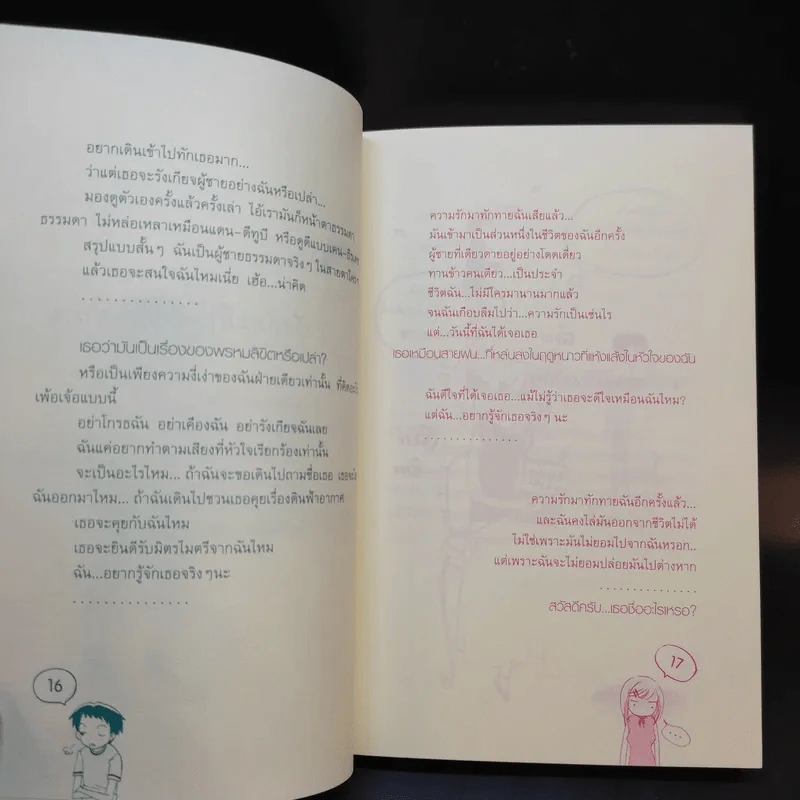 อยากเดินเข้าไปทักเธอมาก...
ว่าแต่เธอจะรังเกียจผู้ชายอย่างฉันหรือเปล่า...
มองดูตัวเองครั้งแล้วครั้งเล่า ไอ้เรามันก็หน้าตาธรรมดา
ธรรมดา ไม่หล่อเหลาเหมือนแดน-ดีทูบี หรือดูดีแบบเคน-ธีรเดช
สรุปแบบสั้นๆ ฉันเป็นผู้ชายธรรมดาจริงๆ ในสายตาใครๆ
แล้วเธอจะสนใจฉันไหมเนี่ย เฮ้อ...น่าคิด
................
เธอว่ามันเป็นเรื่องของพรหมลิขิตหรือเปล่า?
หรือเป็นเพียงความงี่เง่าของฉันฝ่ายเดียวเท่านั้น ที่คิด
เพ้อเจ้อแบบนี้
อย่าโกรธฉัน อย่าเคืองฉัน อย่ารังเกียจฉันเลย
ฉันแค่อยากทำตามเสียงที่หัวใจเรียกร้องเท่านั้น
จะเป็นอะไรไหม... ถ้าฉันจะขอเดินไปถามชื่อเธอ
ฉันออกมาไหม... ถ้าฉันเดินไปชวนเธอคุยเรื่องดินฟ้าอากาศ
เธอจะคุยกับฉันไหม
เธอจะยินดีรับมิตรไมตรีจากฉันไหม
ฉัน...อยากรู้จักเธอจริงๆนะ
................
16
ความรักมาทักทายฉันเสียแล้ว...
มันเข้ามาเป็นส่วนหนึ่งในชีวิตของฉันอีกครั้ง
ผู้ชายที่เดียวดายอยู่อย่างโดดเดี่ยว
ทานข้าวคนเดียว...เป็นประจำ
ชีวิตฉัน...ไม่มีใครมานานมากแล้ว
จนฉันเกือบลืมไปว่า...ความรักเป็นเช่นไร
แต่...วันนี้ที่ฉันได้เจอเธอ
เธอเหมือนสายฝน...ที่หล่นลงในฤดูหนาวที่แห้งแล้งในหัวใจของฉัน
ฉันดีใจที่ได้เจอเธอ...แม้ไม่รู้ว่าเธอจะดีใจเหมือนฉันไหม?
แต่ฉัน...อยากรู้จักเธอจริงๆ นะ
...............
ความรักมาทักทายฉันอีกครั้งแล้ว...
และฉันคงไล่มันออกจากชีวิตไม่ได้
ไม่ใช่เพราะมันไม่ยอมไปจากฉันหรอก..
แต่เพราะฉันจะไม่ยอมปล่อยมันไปต่างหาก
...............
สวัสดีครับ...เธอชื่ออะไรเหรอ?
17
....